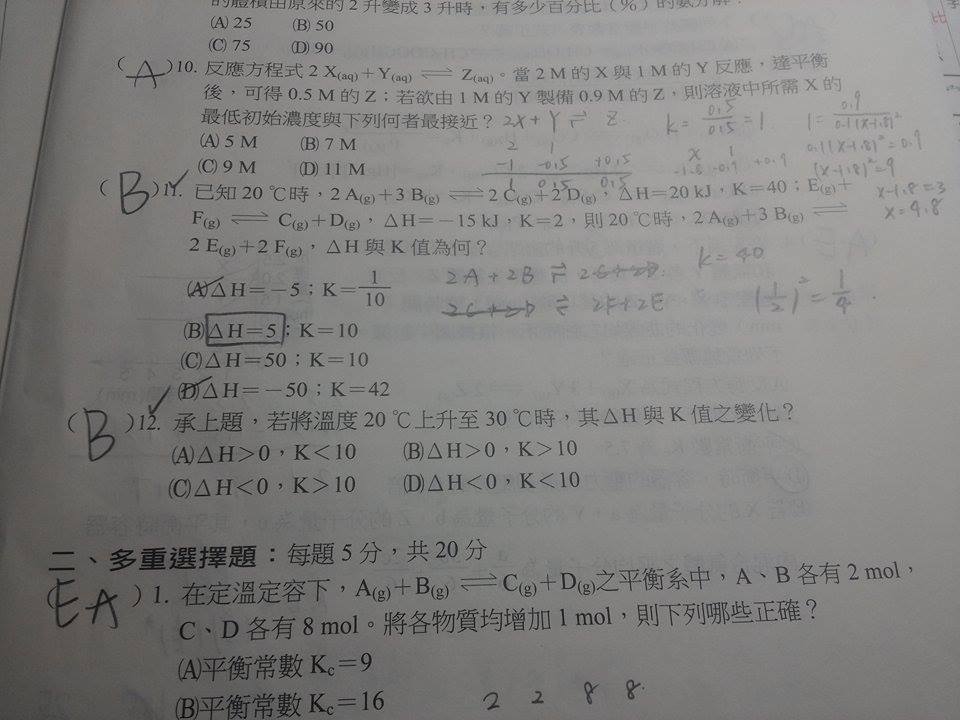 的體積由原來的 2 升變成 3 升時，有多少百分比（%）的數分解？
(A) 25 (B) 50
(C) 75 (D) 90
( A )10. 反應方程式 2 X(aq)+Y(aq) ⇌ Z(aq)。當 2 M 的 X 與 1 M 的 Y 反應，達平衡
後，可得 0.5 M 的 Z；若欲由 1 M 的 Y 製備 0.9 M 的 Z，則溶液中所需 X 的
最低初始濃度與下列何者最接近？ 2X+Y ⇌ Z k=0.5/0.5=1 1=0.9/0.1(x-1.8)²
(A) 5 M (B) 7 M 2 1 x 1 0.1(x-1.8)²=0.9
(C) 9 M (D) 11 M -1 -0.5 +0.5 -1.8 -0.9 +0.9 (x-1.8)²=9
1 0.5 0.5 x-1.8=3
x=4.8
( B )11. 已知 20 ℃時，2 A(g)+3 B(g) ⇌ 2 C(g)+2 D(g)，ΔH=20 kJ，K=40；E(g)+
F(g) ⇌ C(g)+D(g)，ΔH=-15 kJ，K=2，則 20 ℃時，2 A(g)+3 B(g) ⇌
2 E(g)+2 F(g)，ΔH 與 K 值為何？
(A)ΔH=-5；K=1/10 2A+2B ⇌ 2C+2D k=40
2C+2D ⇌ 2F+2E (1/2)²=1/4
(B)ΔH=5；K=10
(C)ΔH=50；K=10
(D)ΔH=-50；K=42
( B )12. 承上題，若將溫度 20 ℃上升至 30 ℃時，其ΔH 與 K 值之變化？
(A)ΔH>0，K<10 (B)ΔH>0，K>10
(C)ΔH<0，K>10 (D)ΔH<0，K<10
二、多重選擇題：每題 5 分，共 20 分
( EA ) 1. 在定溫定容下，A(g)+B(g) ⇌ C(g)+D(g)之平衡系中，A、B 各有 2 mol，
C、D 各有 8 mol。將各物質均增加 1 mol，則下列哪些正確？
(A)平衡常數 Kc=9
(B)平衡常數 Kc=16 2 2 8 8